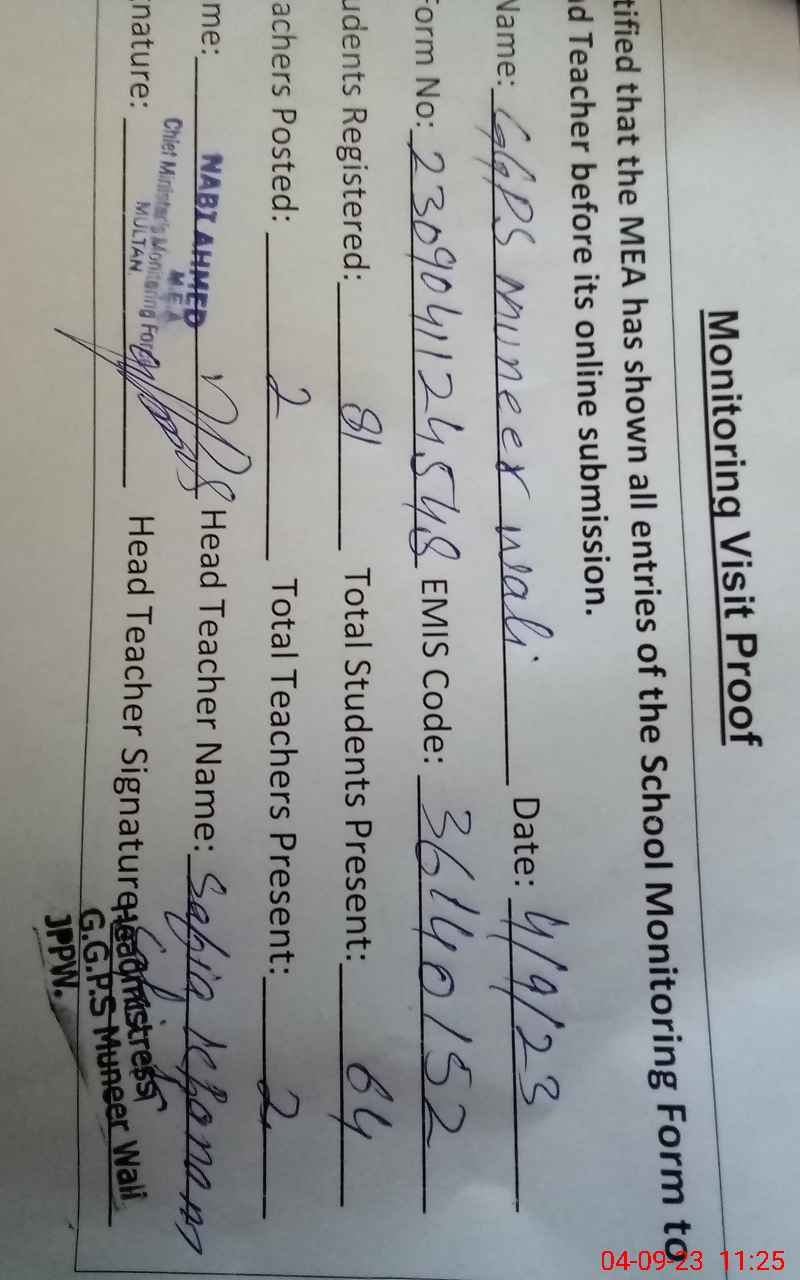 Monitoring Visit Proof
tified that the MEA has shown all entries of the School Monitoring Form to
ad Teacher before its online submission.
Name: GGPS Muneer Wali Date: 4/9/23
Form No: 2309041124548 EMIS Code: 36140152
udents Registered: 81 Total Students Present: 64
achers Posted: 2 Total Teachers Present: 2
me: NABI AHMED Head Teacher Name: Safia Khanam
M.E.A
Chief Minister's Monitoring Force
MULTAN.
nature: Head Teacher Signature:
Headmistress
G.G.P.S Muneer Wali
JPPW.
04-09-23 11:25